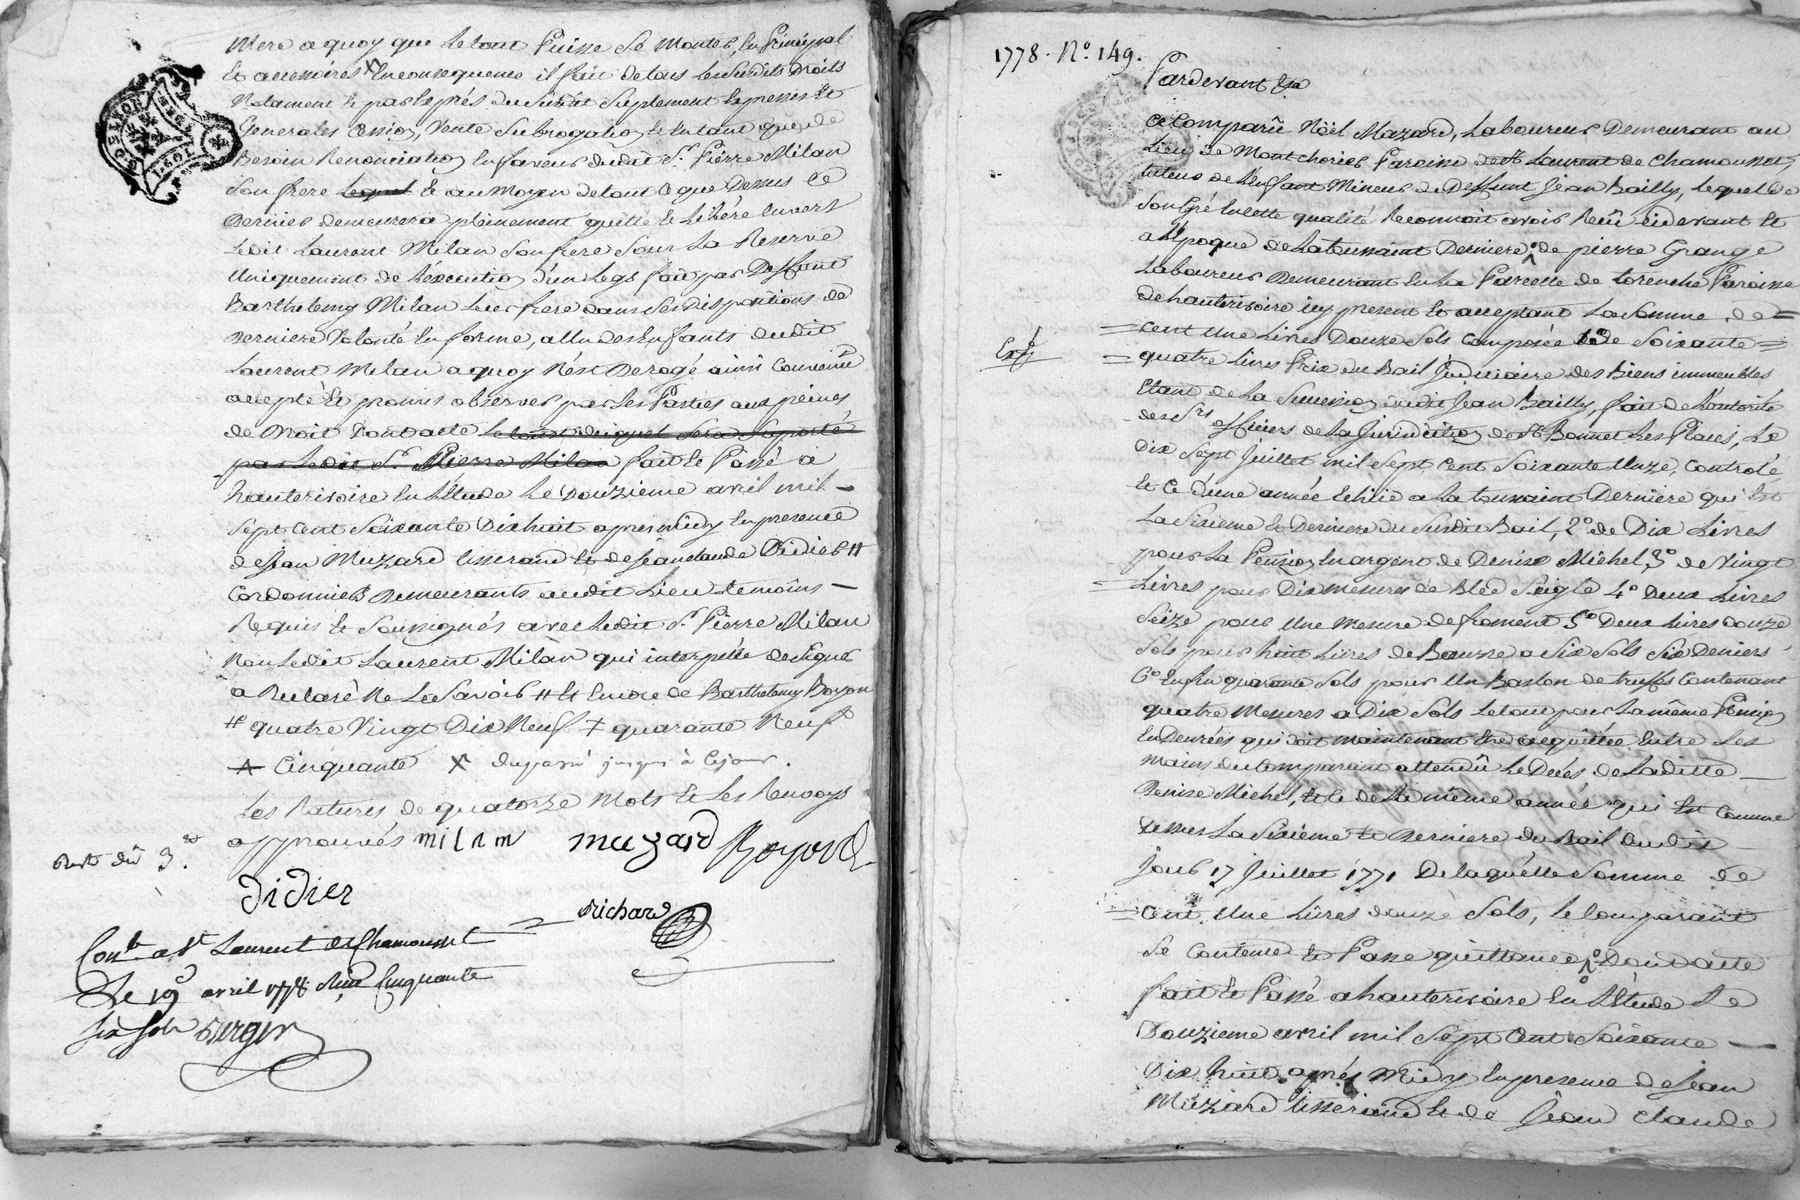 mere a quoy que le tout Puisse se Monter, En Principal
Et accessoires X En consequence il fait de tous les susdits Droits
Notament & par Exprés du susdit Suplement Expresses Et
Generales Cession, Vente Subrogation, Et En tant que de
Besoin Renonciation En faveur dudit Sr. Pierre Milan
son frere lequel Et au Moyen de tout ce que Dessus Ce
Dernier demeurera pleinement quitte & Liberé Envers
Ledit Laurent Milan son frere sous La Reserve
Uniquement de L'execution d'un Legs fait par Deffunt
Barthelemy Milan Leur frere dans ses dispositions de
Derniere Volonté En forme, a l'un des Enfants dudit
Laurent Milan a quoy N'est Derogé ainsi Convenu
accepté Et promis observer par Les Parties aux peines
de Droit Dont acte Le tout duquel sera suporté
par Ledit Sr. Pierre Milan fait & Passé a
hauterivoire En L'Etude Le Douzieme avril mil –
Sept Cent Soixante Dix huit apres midy En presence
de Jean Muzard tisserand & de Jean Claude Didier #
Cordonniers Demeurants audit Lieu temoins –
Requis & Soussignés avec Ledit Sr. Pierre Milan
Non Ledit Laurent Milan qui interpellé de signer
a Declaré Ne Le Savoir # Et Encore de Barthelemy Boyon
# quatre Vingt Dix Neuf + quarante Neuf
Cinquante X du passé jusqu'à ce jour.
Les Ratures de quatorze Mots & Les Renvoys
approuvés milan muzard Boyon
Reste dû 3.
didier
Richard
Conlé a St Laurent de Chamousset
Le 19 avril 1778 Reçu Cinquante
six sols Durgin
1778. No. 149.
Pardevant &a
Exp
est Comparû Nöel Mazard, Laboureur Demeurant au
Lieu de Montchorier Paroisse de St Laurent de Chamousset,
tuteur de L'enfant Mineur de Deffunt Jean Bailly, lequel de
son Gré En cette qualité Reconnoit avoir Reçû cidevant Et
a l'Epoque de La toussaint Derniere de pierre Grange
Laboureur Demeurant En La Parcelle de Lorenche Paroisse
de hauterivoire icy present & acceptant La Somme de =
= cent Une Livres Douze Sols Composée 1º de Soixante =
= quatre Livres Prix du Bail Judiciaire des Biens immeubles
Etant de La Succession dudit Jean Bailly, fait de L'autorité
de srs officiers de La Juridiction de St Bonnet Les Places, Le
Dix Sept Juillet mil Sept Cent Soixante Unze, Controlé
Et Ce d'une année Echüe a La toussaint Derniere qui Est
La Sixieme & Derniere du Susdit Bail, 2º de Dix Livres
pour La Pension En argent de Denise Michel, 3º de Vingt
= Livres pour Dix mesures de Bled Seigle 4º Deux Livres
Seize pour Une Mesure de froment 5º Deux Livres douze
Sols pour huit Livres de Beurre a Six Sols Six Deniers
6º Enfin quarante Sols pour Un Baston de truffes Contenant
quatre Mesures a Dix Sols Le tout pour La même Pension
En Denrées qui doit maintenant Etre acquittée Entre Les
mains du Comparant attendû Le Decès de Laditte –
Denise Michel, & Ce de La même année qui Est Comme
dessus La Sixieme & Derniere du Bail dudit –
Jour 17 Juillet 1771 De laquelle Somme de
= cent Une Livres douze Sols, le Comparant
se Contente & Passe quittance, Dont acte
fait & Passé a hauterivoire En L'Etude Le
Douzieme avril mil Sept Cent Soixante –
Dix huit après Midy En presence de Jean
Muzard tisserand & de Jean Claude